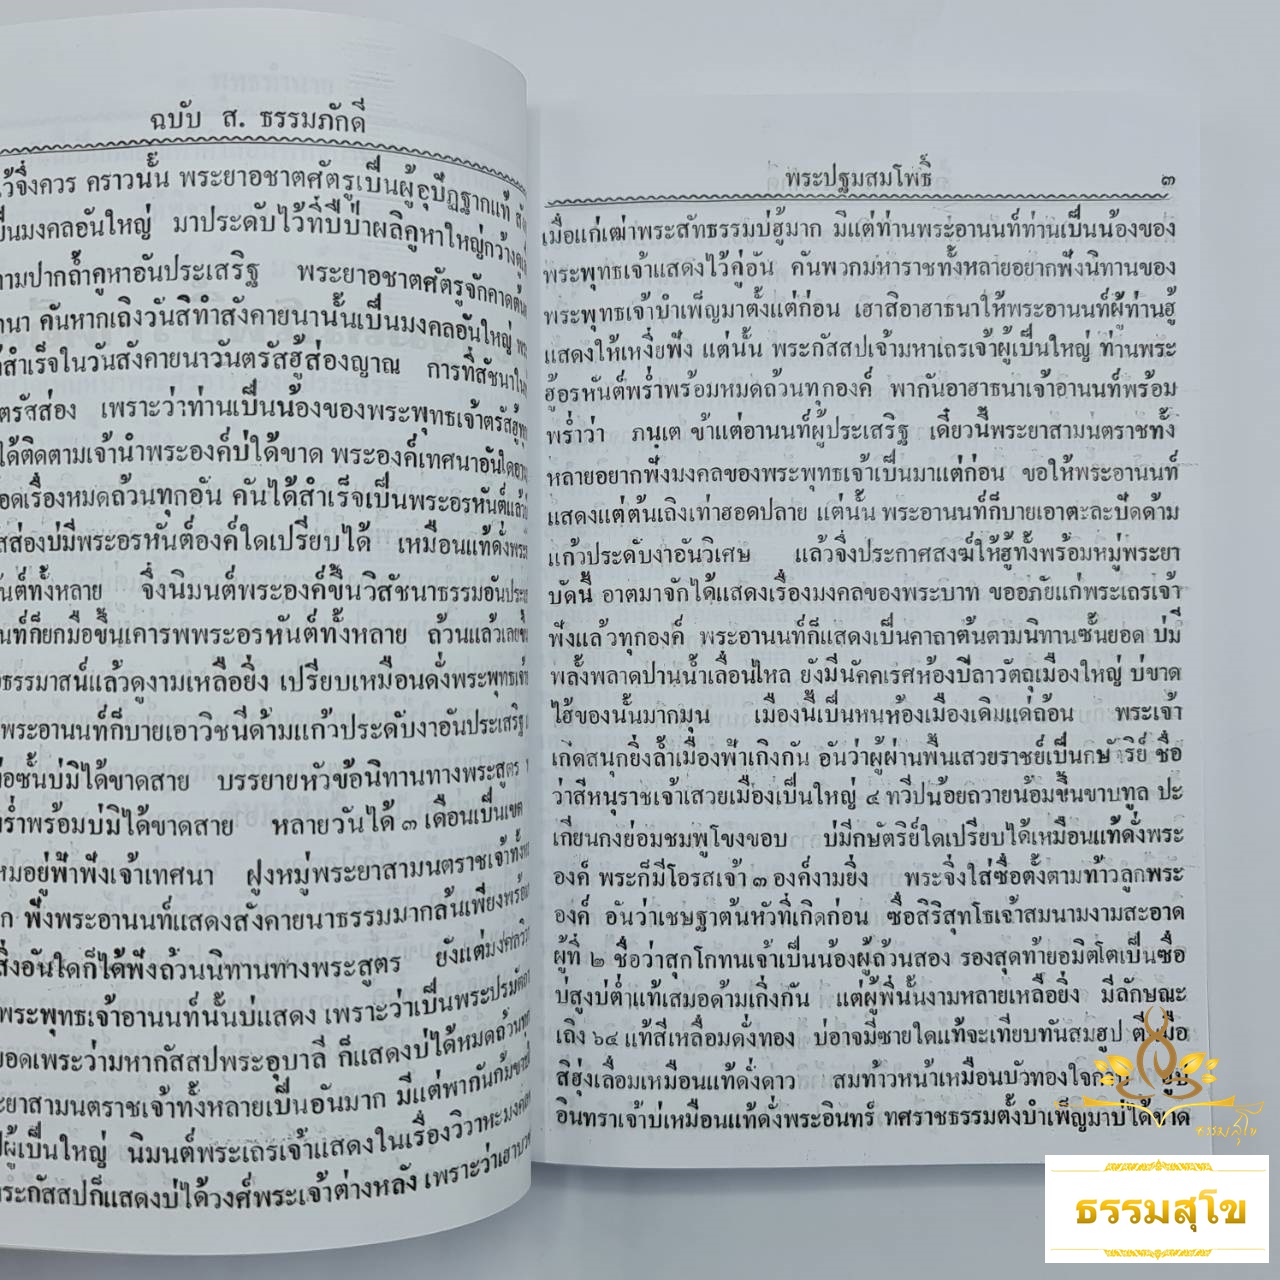 ฉบับ ส. ธรรมภักดี
ไว้จึ่งควร คราวนั้น พระยาอชาตศัตรูเป็นผู้อุปัฏฐากแท้
เป็นมงคลอันใหญ่ มาประดับไว้ที่ปีป่าผลิคูหาใหญ่กว้าง
ตามปากถ้ำคูหาอันประเสริฐ พระยาอชาตศัตรูจักคาด
คันหากเถิงวันสิทำสังคายนานั้นเป็นมงคลอันใหญ่
สำเร็จในวันสังคายนาวันตรัสฮู้ส่องญาณ การที่สัชนา
ตรัสส่อง เพราะว่าท่านเป็นน้องของพระพุทธเจ้าตรัสฮู้
ได้ติดตามเจ้านำพระองค์บ่ได้ขาด พระองค์เทศนาอันใด
เรื่องหมดถ้วนทุกอัน คันได้สำเร็จเป็นพระอรหันต์แล้ว
บ่มีพระอรหันต์องค์ใดเปรียบได้ เหมือนแท้ดั่งพระ
ทั้งหลาย จึ่งนิมนต์พระองค์ขึ้นวิสัชนาธรรมอัน
ก็ยกมือขึ้นเคารพพระอรหันต์ทั้งหลาย ถ้วนแล้วเลย
ธรรมาสน์แล้วดูงามเหลือยิ่ง เปรียบเหมือนดั่งพระพุทธเจ้า
พระอานนท์ก็บายเอาวิชนีด้ามแก้วประดับงาอันประเสริฐ
ซั้นบ่มิได้ขาดสาย บรรยายหัวข้อนิทานทางพระสูตร
พร่ำพร้อมบ่มิได้ขาดสาย หลายวันได้ ๓ เดือนเป็นเขต
อยู่ฟ้าฟังเจ้าเทศนา ฝูงหมู่พระยาสามนตราชเจ้าทั้ง
ฟังพระอานนท์แสดงสังคายนาธรรมมากล้นเพียงพร้อม
สิ่งอันใดก็ได้ฟังถ้วนนิทานทางพระสูตร ยังแต่มงคล
พระพุทธเจ้าอานนท์นั้นบ่แสดง เพราะว่าเป็นพระปรมัตถ
เพระว่ามหากัสสปพระอุบาลี ก็แสดงบ่ได้หมดถ้วน
พระยาสามนตราชเจ้าทั้งหลายเป็นอันมาก มีแต่พากันก้ม
ผู้เป็นใหญ่ นิมนต์พระเถรเจ้าแสดงในเรื่องวิวาหะมงคล
พระกัสสปก็แสดงบ่ได้วงศ์พระเจ้าต่างหลัง เพราะว่า
พระปฐมสมโพธิ์ ๓
เมื่อแก่เฒ่าพระสัทธรรมบ่ฮู้มาก มีแต่ท่านพระอานนท์ท่านเป็นน้องของ
พระพุทธเจ้าแสดงไว้คู่อัน คันพวกมหาราชทั้งหลายอยากฟังนิทานของ
พระพุทธเจ้าบำเพ็ญมาตั้งแต่ก่อน เฮาสิอาฮาธนาให้พระอานนท์ผู้ท่านฮู้
แสดงให้เหงี่ยฟัง แต่นั้น พระกัสสปเจ้ามหาเถรเจ้าผู้เป็นใหญ่ ท่านพระ
ฮู้อรหันต์พร่ำพร้อมหมดถ้วนทุกองค์ พากันอาฮาธนาเจ้าอานนท์พร้อม
พร่ำว่า ภนฺเต ข้าแต่อานนท์ผู้ประเสริฐ เดี๋ยวนี้พระยาสามนตราชทั้ง
หลายอยากฟังมงคลของพระพุทธเจ้าเป็นมาแต่ก่อน ขอให้พระอานนท์
แสดงแต่ต้นเถิงเท่าฮอดปลาย แต่นั้น พระอานนท์ก็บายเอาตะละปัดด้าม
แก้วประดับงาอันวิเศษ แล้วจึ่งประกาศสงฆ์ให้ฮู้ทั้งพร้อมหมู่พระยา
บัดนี้ อาตมาจักได้แสดงเรื่องมงคลของพระบาท ขออภัยแก่พระเถรเจ้า
ฟังแล้วทุกองค์ พระอานนท์ก็แสดงเป็นคาถาต้นตามนิทานซั้นยอด บ่มี
พลั้งพลาดปานน้ำเลื่อนไหล ยังมีนัคคเรศห้องปีลาวัตถุเมืองใหญ่ บ่ขาด
ไฮ้ของนั้นมากมุน เมืองนี้เป็นหนห้องเมืองเดิมแด่ถ้อน พระเจ้า
เกิดสนุกยิ่งล้ำเมืองฟ้าเกิงกัน อันว่าผู้ผ่านพื้นเสวยราชย์เป็นกษัาริย์ ชื่อ
ว่าสีหนุราชเจ้าเสวยเมืองเป็นใหญ่ ๔ ทวีปน้อยถวายน้อมขึ้นขาบทูล ปะ
เกียนกงย่อมชมพูโขงขอบ บ่มีกษัตริย์ใดเปรียบได้เหมือนแท้ดั่งพระ
องค์ พระก็มีโอรสเจ้า ๓ องค์งามยิ่ง พระจึ่งใส่ชื่อตั้งตามท้าวลูกพระ
องค์ อันว่าเชษฐาต้นหัวที่เกิดก่อน ชื่อสิริสุทโธเจ้าสมนามงามสะอาด
ผู้ที่ ๒ ชื่อว่าสุกโกทนเจ้าเป็นน้องผู้ถ้วนสอง รองสุดท้ายอมิตโตเป็นชื่อ
บ่สูงบ่ต่ำแท้เสมอด้ามเกิ่งกัน แต่ผู้พี่นั้นงามหลายเหลือยิ่ง มีลักษณะ
เถิง ๖๔ แท้สีเหลื่อมดั่งทอง บ่อาจมีชายใดแท้จะเทียบทันสมฮูป ตีนมือ
สิฮุ่งเลื่อมเหมือนแท้ดั่งดาว สมท้าวหน้าเหมือนบัวทองใจก่อน ฮูป
อินทราเจ้าบ่เหมือนแท้ดั่งพระอินทร์ ทศราชธรรมตั้งบำเพ็ญมาบ่ได้ขาด
ธรรมสุโข
ธรรมสุโข